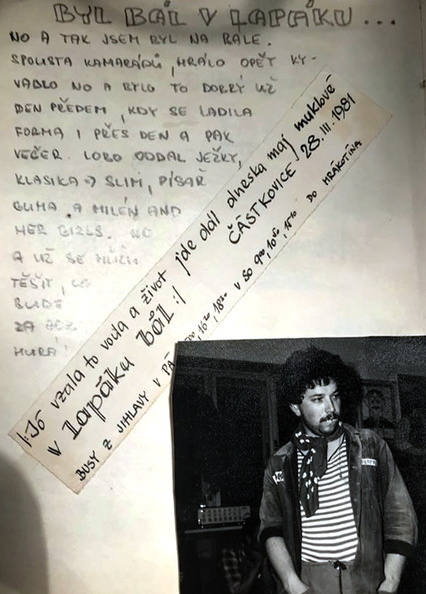 BYL BÁL V LAPÁKU...
NO A TAK JSEM BYL NA BÁLE.
SPOUSTA KAMARÁDŮ, HRÁLO OPĚT KY-
VADLO NO A BYLO TO DOBRÝ UŽ
DEN PŘEDEM, KDY SE LADILA
FORMA I PŘES DEN A PAK
VEČER. LOBO ODDAL JEŽKY,
KLASIKA → SLIM, PÍSAŘ
GUMA A MILÉN AND
HER GIRLS,
A UŽ SE
TĚŠIT,
BUDE
ZA
HURÁ!
|: JÓ vzala to voda a život jde dál dneska maj muklově
v lapáku bál :|
ČÁSTKOVICE 28. III. 1981
BUSY Z JIHLAVY V PÁ 16²⁰, 18²⁰ V SO 9⁰⁰, 10⁵⁰, 15¹⁰ DO MRÁKOTÍNA